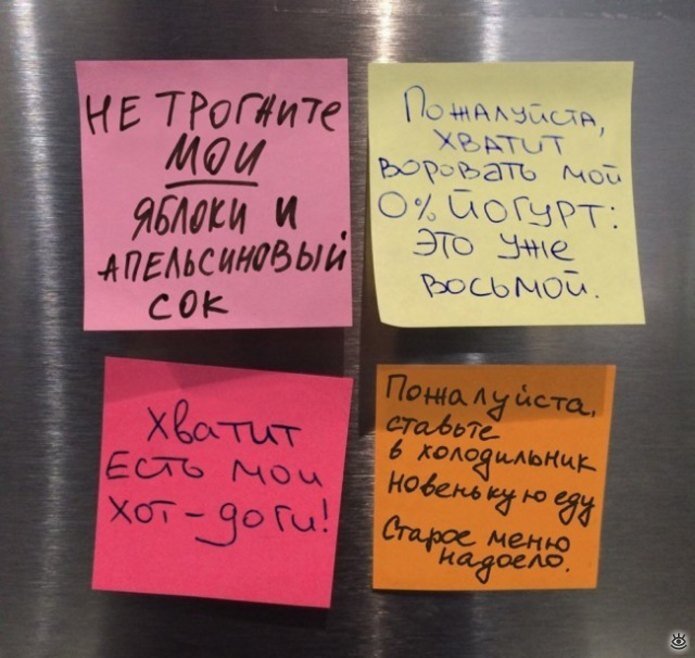 НЕ ТРОГАЙТЕ
МОИ
ЯБЛОКИ И
АПЕЛЬСИНОВЫЙ
СОК
ПОЖАЛУЙСТА,
ХВАТИТ
ВОРОВАТЬ МОЙ
0% ЙОГУРТ:
ЭТО УЖЕ
ВОСЬМОЙ.
Хватит
Есть мои
хот-доги!
Пожалуйста,
ставьте
в холодильник
новенькую еду
Старое меню
надоело.